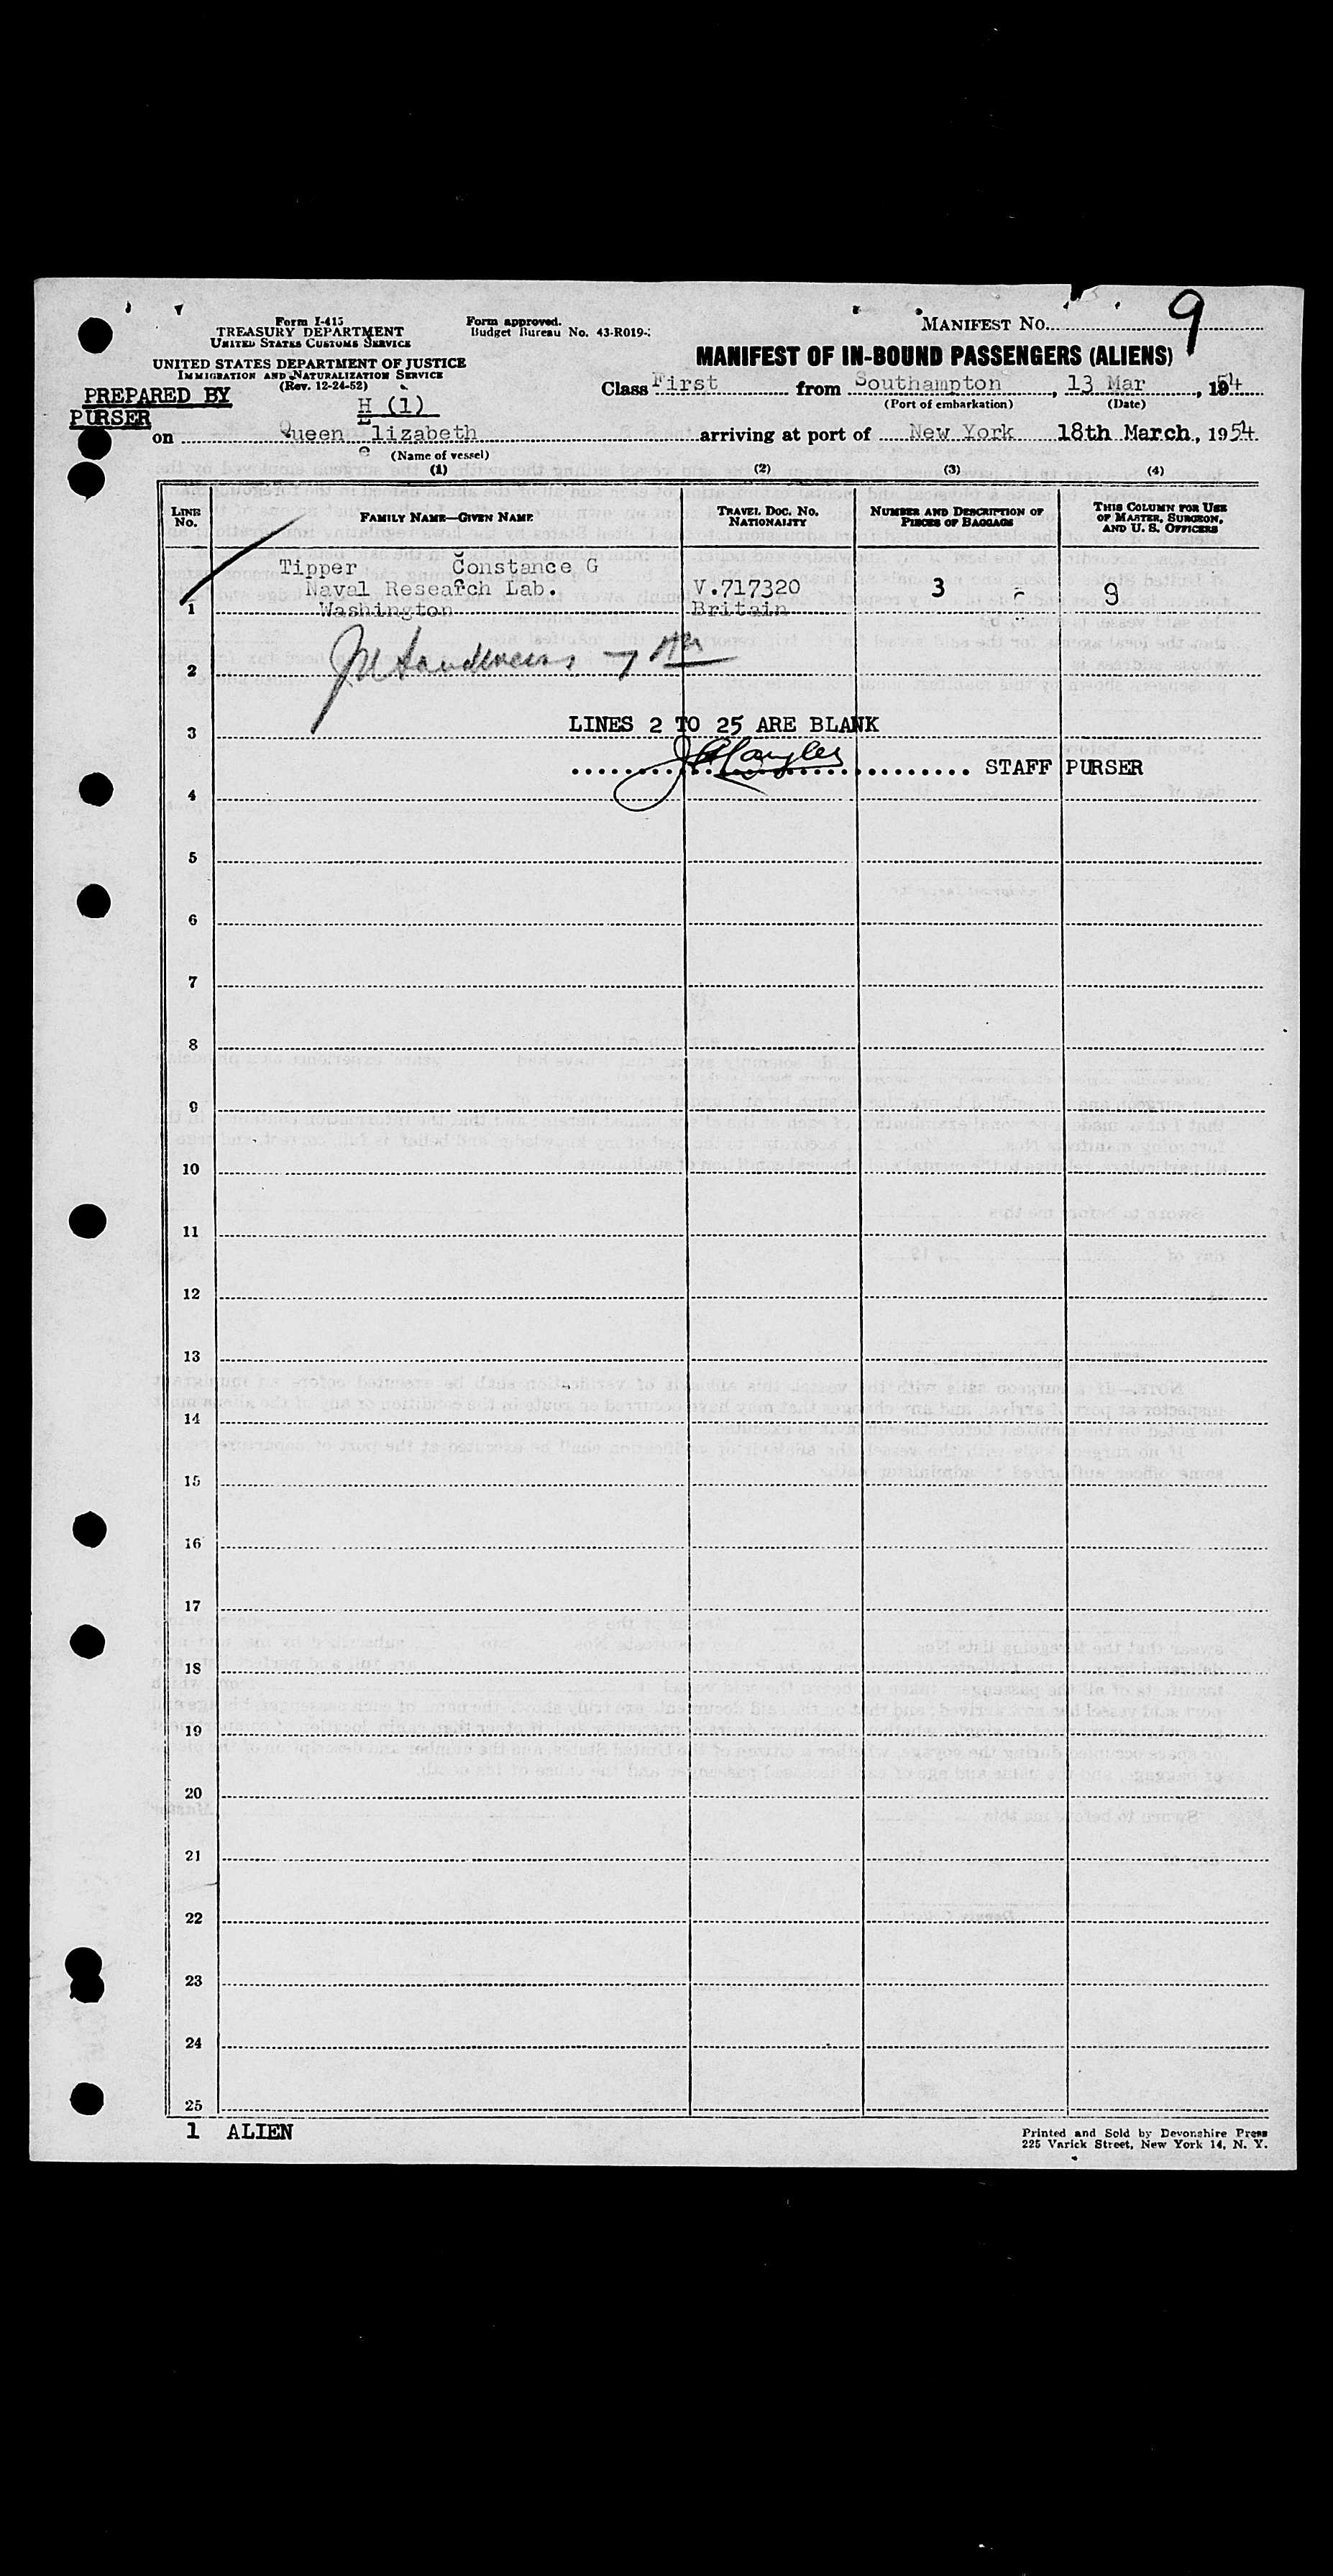 Form I-415
TREASURY DEPARTMENT
UNITED STATES CUSTOMS SERVICE
UNITED STATES DEPARTMENT OF JUSTICE
IMMIGRATION AND NATURALIZATION SERVICE
(Rev. 12-24-52)
Form approved.
Budget Bureau No. 43-R019-
MANIFEST No. 9
MANIFEST OF IN-BOUND PASSENGERS (ALIENS)
PREPARED BY
PURSER
H (1)
Class First from Southampton, 13 Mar, 1954
(Port of embarkation) (Date)
on Queen Elizabeth arriving at port of New York 18th March, 1954
(Name of vessel)
(1) (2) (3) (4)
LINE No. FAMILY NAME—GIVEN NAME TRAVEL DOC. NO. NATIONALITY NUMBER AND DESCRIPTION OF PIECES OF BAGGAGE THIS COLUMN FOR USE OF MASTER, SURGEON, AND U. S. OFFICERS
Tipper Constance G
Naval Research Lab. V.717320 3 - 9
1 Washington Britain
2
LINES 2 TO 25 ARE BLANK
3
STAFF PURSER
4
5
6
7
8
9
10
11
12
13
14
15
16
17
18
19
20
21
22
23
24
25
1 ALIEN
Printed and Sold by Devonshire Press
225 Varick Street, New York 14, N. Y.